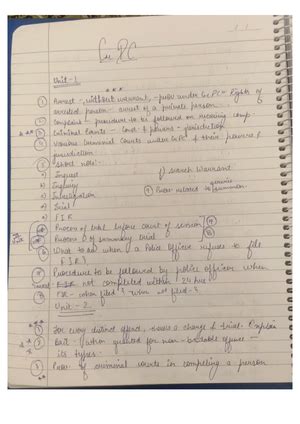 Cr PC
Unit-1
① Arrest - without warrant - prov under CrPC - Rights of
arrested person - arrest of a private person
② Complaint - procedure to be followed on receiving comp.
③ Criminal Courts - and powers - jurisdiction
④ Various Criminal Courts under CrPC & their powers &
jurisdiction
⑤ Short note:-
a) Inquest
f) Search Warrant
b) Inquiry
g) Prov related to service summon
c) Investigation
d) Trial
e) FIR
⑥ Process of trial before court of session
⑦ Process of summary trial
⑧ What to do when a Police Officer refuses to file
FIR?
⑨ Procedure to be followed by police officer when
not completed within 24 hrs
FIR - when filed & when not filed?
Unit-2
① For every distinct offence, a charge & trial - Explain
② Bail - when granted for non-bailable offence -
its types -
③ Prov. of criminal courts in compelling a person